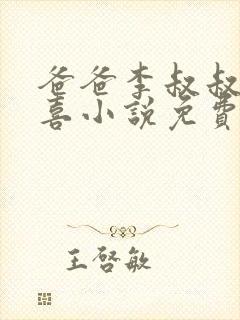 爸爸李叔叔
喜小說免費
王啓敏